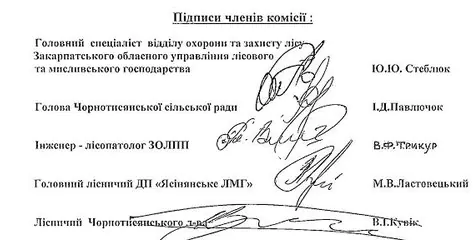 Підписи членів комісії :
Головний спеціаліст відділу охорони та захисту лісу
Закарпатського обласного управління лісового
та мисливського господарства Ю.Ю. Стеблюк
Голова Чорнотисянської сільської ради І.Д.Павлючок
Інженер - лісопатолог ЗОЛПП В.Ф.Трикур
Головний лісничий ДП «Ясінянське ЛМГ» М.В.Ластовецький
Лісничий Чорнотисянського л-ва В.І.Кувік